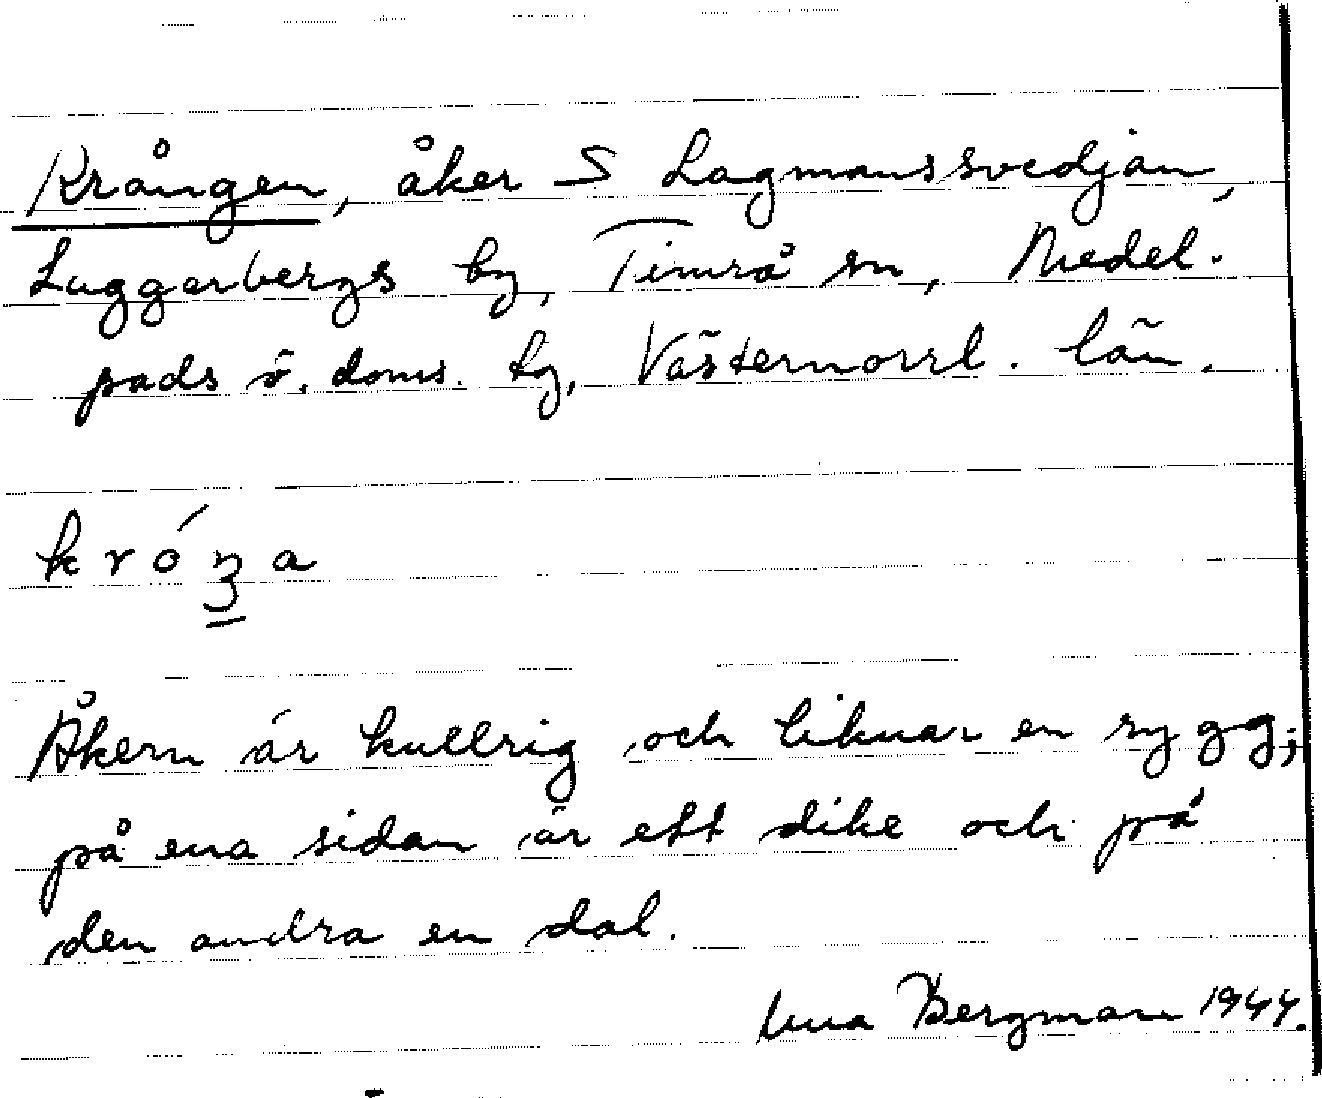 Krången, åker S Lagmanssvedjan,
Luggarbergs by, Timrå sn, Medel-
pads ö. doms. tg, Västernorrl. län.
króŋa
Åkern är kullrig och liknar en rygg;
på ena sidan är ett dike och på
den andra en dal.
Una Bergman 1944.